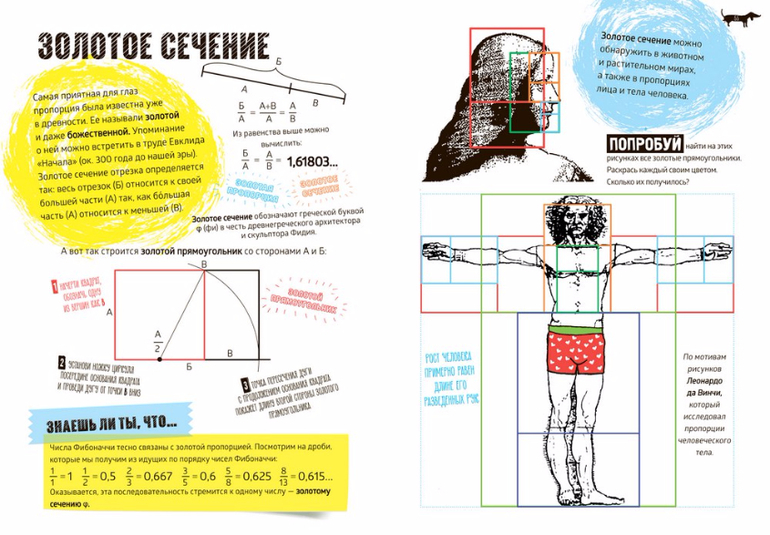 ЗОЛОТОЕ СЕЧЕНИЕ
Самая приятная для глаз
пропорция была известна уже
в древности. Ее называли золотой
и даже божественной. Упоминание
о ней можно встретить в труде Евклида
«Начала» (ок. 300 года до нашей эры).
Золотое сечение отрезка определяется
так: весь отрезок (Б) относится к своей
большей части (А) так, как бо́льшая
часть (А) относится к меньшей (В).
Б
А
В
Б/А = А+В/А = А/В
Из равенства выше можно
вычислить:
Б/А = А/В = 1,61803...
ЗОЛОТАЯ
ПРОПОРЦИЯ
ЗОЛОТОЕ
СЕЧЕНИЕ
Золотое сечение обозначают греческой буквой
φ (фи) в честь древнегреческого архитектора
и скульптора Фидия.
А вот так строится золотой прямоугольник со сторонами А и Б:
1 НАЧЕРТИ КВАДРАТ,
ОБОЗНАЧЬ ОДНУ
ИЗ ВЕРШИН КАК В
А
В
А/2
Б
В
ЗОЛОТОЙ
ПРЯМОУГОЛЬНИК
2 УСТАНОВИ НОЖКУ ЦИРКУЛЯ
ПОСЕРЕДИНЕ ОСНОВАНИЯ КВАДРАТА
И ПРОВЕДИ ДУГУ ОТ ТОЧКИ В ВНИЗ
3 ТОЧКА ПЕРЕСЕЧЕНИЯ ДУГИ
С ПРОДОЛЖЕНИЕМ ОСНОВАНИЯ КВАДРАТА
ПОКАЖЕТ ДЛИНУ ВТОРОЙ СТОРОНЫ ЗОЛОТОГО
ПРЯМОУГОЛЬНИКА
ЗНАЕШЬ ЛИ ТЫ, ЧТО...
Числа Фибоначчи тесно связаны с золотой пропорцией. Посмотрим на дроби,
которые мы получим из идущих по порядку чисел Фибоначчи:
1/1 = 1 1/2 = 0,5 2/3 = 0,667 3/5 = 0,6 5/8 = 0,625 8/13 = 0,615...
Оказывается, эта последовательность стремится к одному числу — золотому
сечению φ.
Золотое сечение можно
обнаружить в животном
и растительном мирах,
а также в пропорциях
лица и тела человека.
ПОПРОБУЙ найти на этих
рисунках все золотые прямоугольники.
Раскрась каждый своим цветом.
Сколько их получилось?
РОСТ ЧЕЛОВЕКА
ПРИМЕРНО РАВЕН
ДЛИНЕ ЕГО
РАЗВЕДЕННЫХ РУК
По мотивам
рисунков
Леонардо
да Винчи,
который
исследовал
пропорции
человеческого
тела.